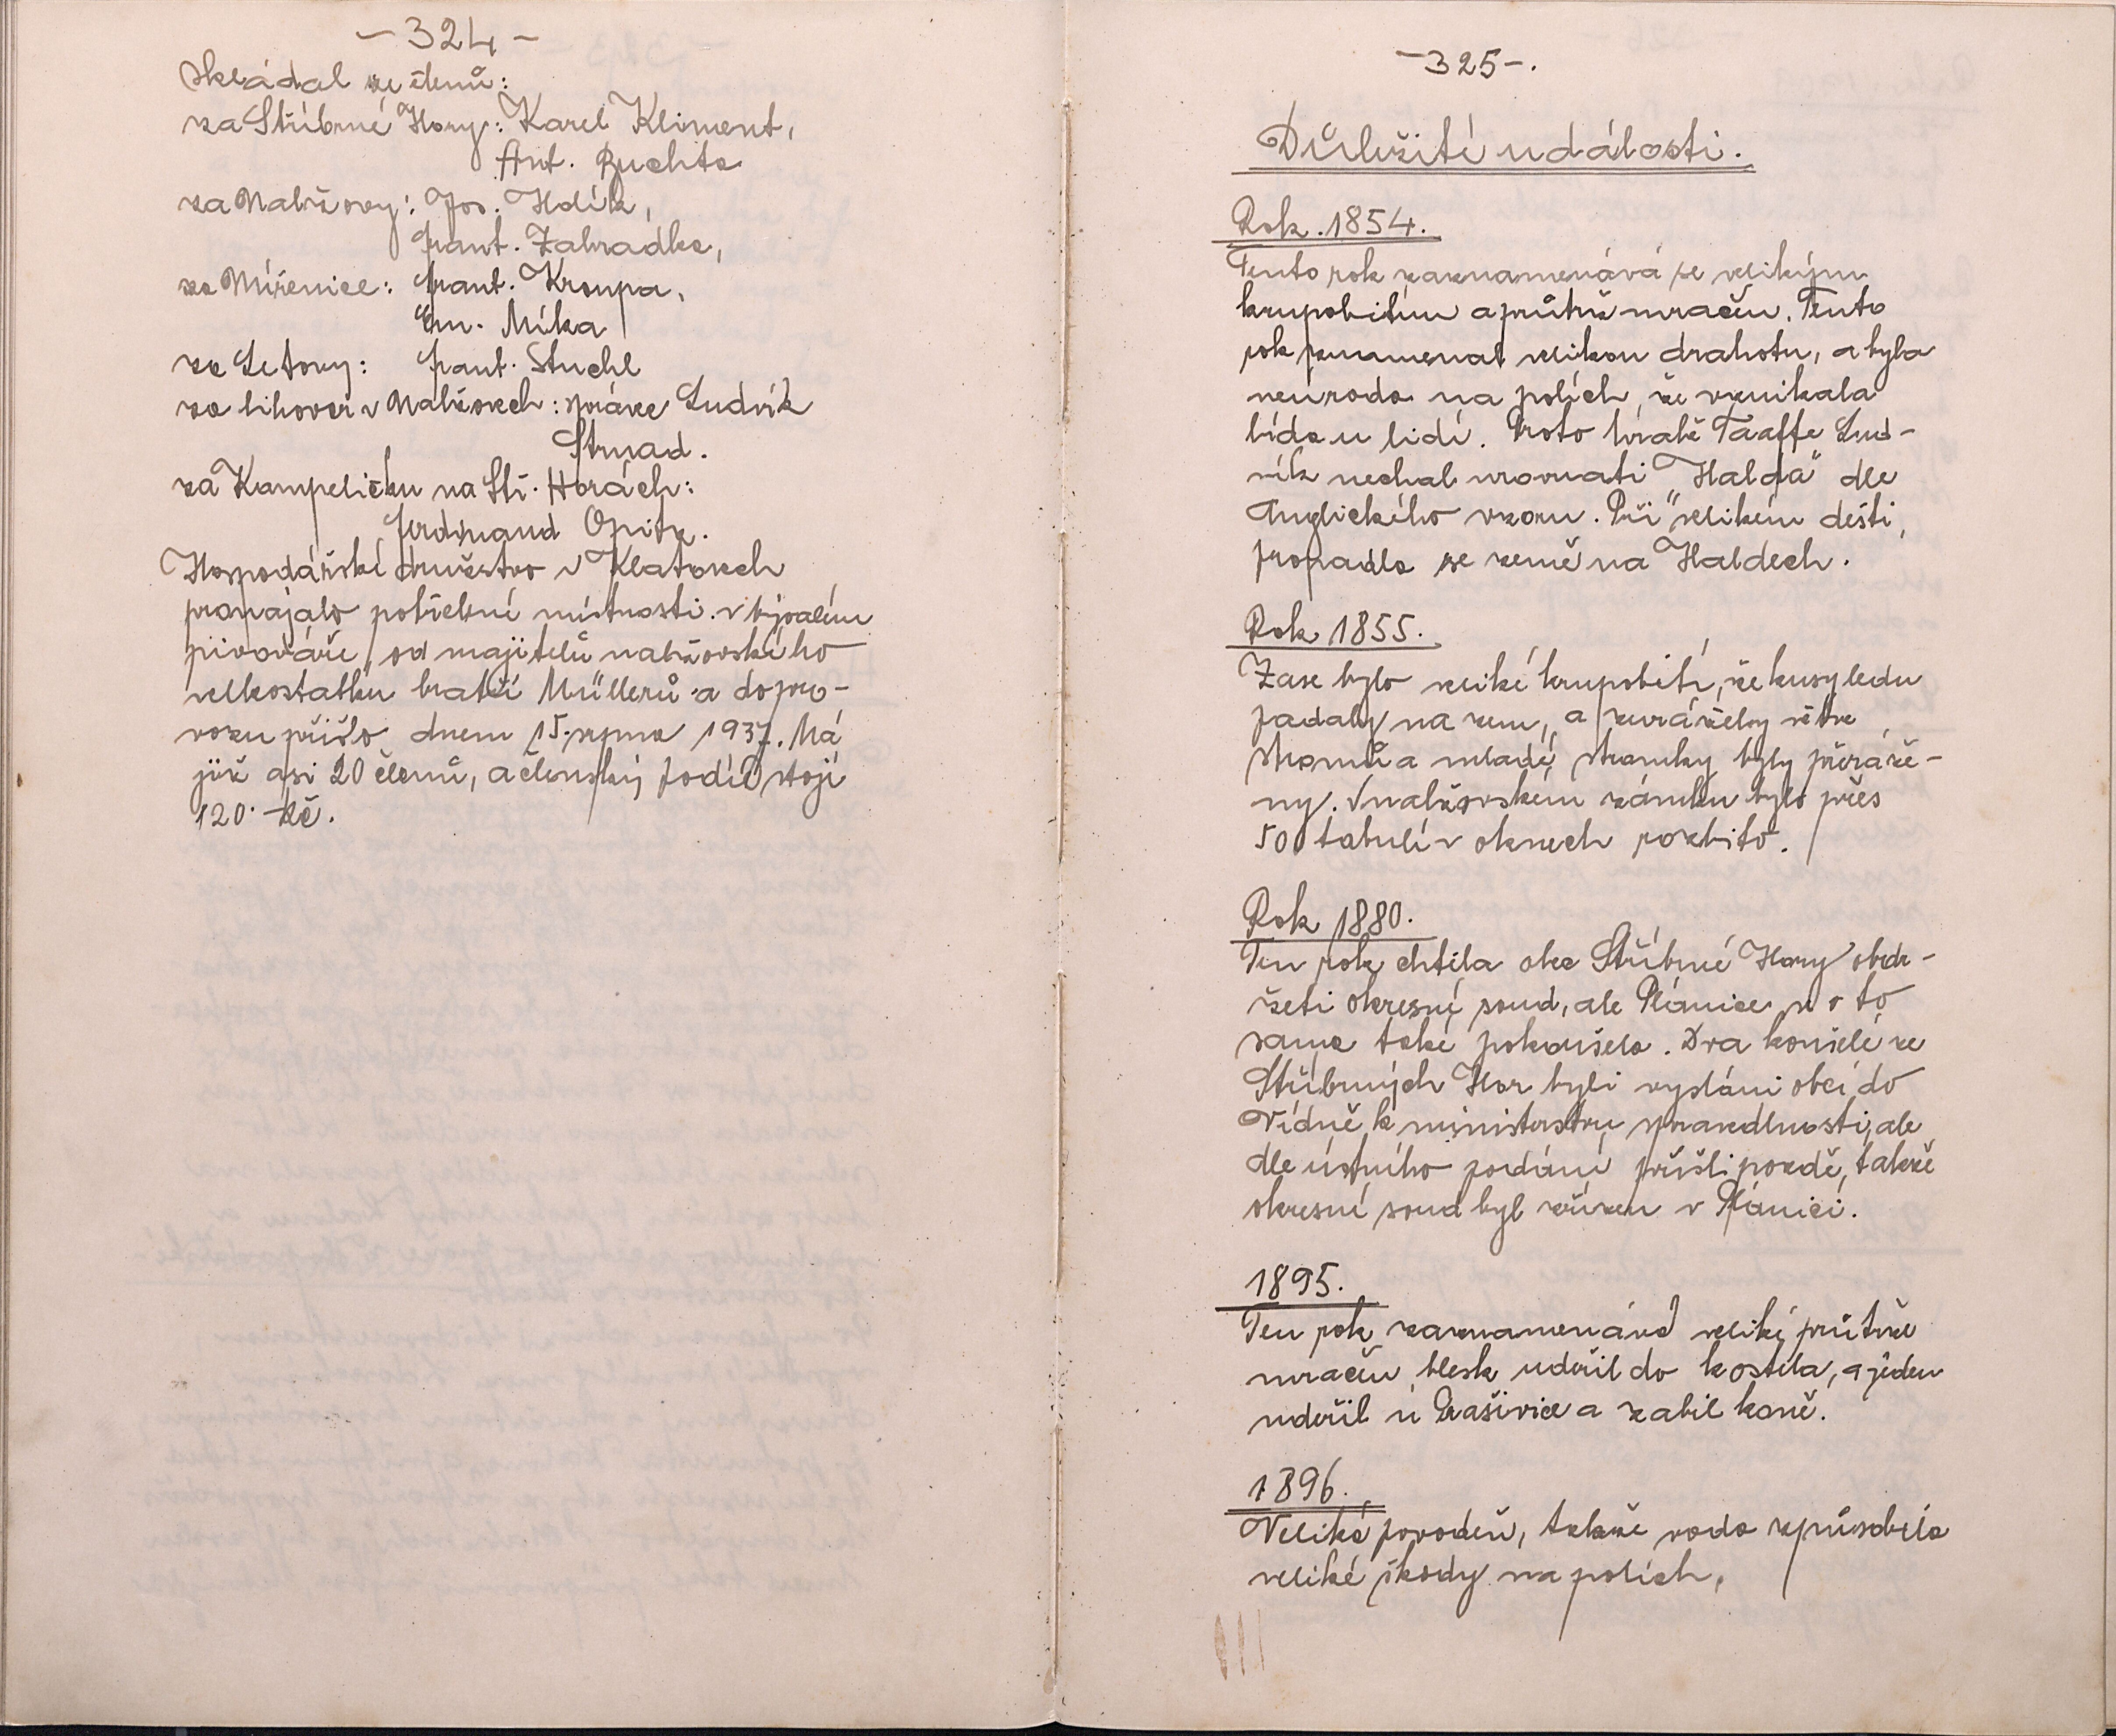 – 324 –
skládal ze členů:
za Stříbrné Hory: Karel Kliment,
Ant. Buchta
za Nalžovy: Jos. Hdík,
Frant. Zahradka,
za Miřenice: Frant. Kroupa,
Em. Míka
za Letovy: Frant. Stuchl
za lihovar v Nalžovech: správce Ludvík
Strnad.
za Kampeličku na Stř. Horách:
Ferdinand Opitz.
Hospodářské družstvo v Klatovech
pronajalo potřebné místnosti v bývalém
pivováře, od majitelů nalžovského
velkostatku bratří Müllerů a do pro-
vozu přišlo dnem 15. srpna 1937. Má
již asi 20 členů, a členský podíl stojí
120.- Kč.
– 325 – .
Důležité události.
Rok. 1854.
Tento rok zaznamenává se velikým
krupobitím a průtrž mračen. Tento
rok znamenal velikou drahotu, a byla
neúroda na polích, že vznikala
bída u lidí. Proto hrabě Taaffe Lud-
vík nechal urovnati „Halda" dle
Anglického vzoru. Při velikém dešti,
propadla se země na Haldech.
Rok 1855.
Zase bylo veliké krupobití, že kusy ledu
padaly na zem, a zurážely větve
stromů a mladé stromky byly přeráže-
ny. V nalžovském zámku bylo přes
500 tabulí v oknech rozbito.
Rok 1880.
Ten rok chtěla obec Stříbrné Hory obdr-
žeti okresní soud, ale Plánice se o to
samo také pokoušela. Dva konšelé ze
Stříbrných Hor byli vysláni obcí do
Vídně k ministerstvu spravedlnosti, ale
dle ústního podání přišli pozdě, takže
okresní soud byl zřízen v Plánici.
1895.
Ten rok zaznamenává veliké průtrže
mračen, blesk udeřil do kostela, a jeden
udeřil u Prašivice a zabil koně.
1896.
Veliká povodeň, takže voda způsobila
veliké škody na polích,